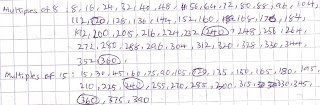 Multiples of 8 : 8, 16, 24, 32, 40, 48, 56, 64, 72, 80, 88, 96, 104,
112, 120, 128, 136, 144, 152, 160, 168, 176, 184,
192, 200, 208, 216, 224, 232, 240, 248, 256, 264,
272, 280, 288, 296, 304, 312, 320, 328, 336, 344,
352, 360,
Multiples of 15 : 15, 30, 45, 60, 75, 90, 105, 120, 135, 150, 165, 180, 195,
210, 225, 240, 255, 270, 285, 300, 315, 330, 345,
360, 375, 390